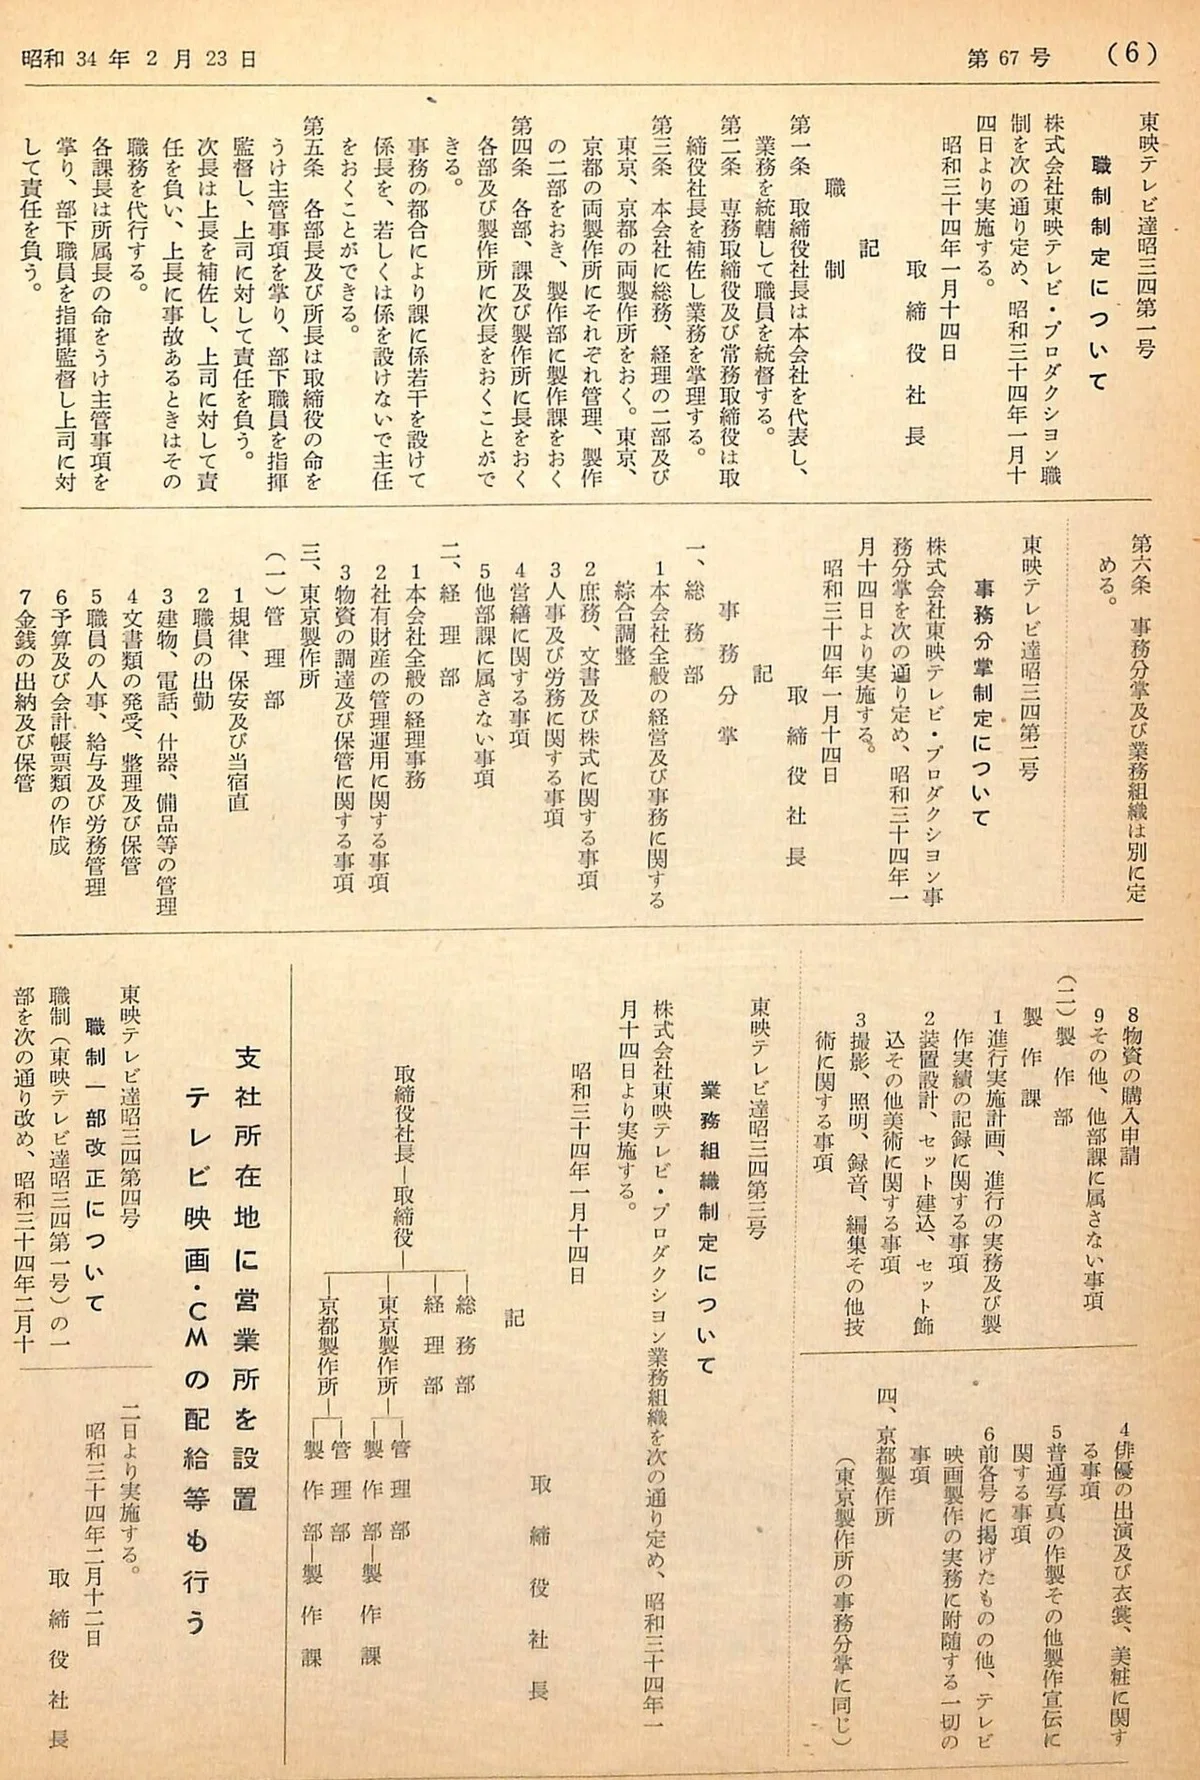 昭和34年2月23日
第67号
(6)
東映テレビ達昭三四第一号
職制制定について
株式会社東映テレビ・プロダクシヨン職
制を次の通り定め、昭和三十四年一月十
四日より実施する。
昭和三十四年一月十四日
取締役社長
記
職制
第一条 取締役社長は本会社を代表し、
業務を統轄して職員を統督する。
第二条 専務取締役及び常務取締役は取
締役社長を補佐し業務を掌理する。
第三条 本会社に総務、経理の二部及び
東京、京都の両製作所をおく。東京、
京都の両製作所にそれぞれ管理、製作
の二部をおき、製作部に製作課をおく
第四条 各部、課及び製作所に長をおく
各部及び製作所に次長をおくことがで
きる。
事務の都合により課に係若干を設けて
係長を、若しくは係を設けないで主任
をおくことができる。
第五条 各部長及び所長は取締役の命を
うけ主管事項を掌り、部下職員を指揮
監督し、上司に対して責任を負う。
次長は上長を補佐し、上司に対して責
任を負い、上長に事故あるときはその
職務を代行する。
各課長は所属長の命をうけ主管事項を
掌り、部下職員を指揮監督し上司に対
して責任を負う。
第六条 事務分掌及び業務組織は別に定
める。
東映テレビ達昭三四第二号
事務分掌制定について
株式会社東映テレビ・プロダクシヨン事
務分掌を次の通り定め、昭和三十四年一
月十四日より実施する。
昭和三十四年一月十四日
取締役社長
記
事務分掌
一、総務部
1本会社全般の経営及び事務に関する
綜合調整
2庶務、文書及び株式に関する事項
3人事及び労務に関する事項
4営繕に関する事項
5他部課に属さない事項
二、経理部
1本会社全般の経理事務
2社有財産の管理運用に関する事項
3物資の調達及び保管に関する事項
三、東京製作所
(一)管理部
1規律、保安及び当宿直
2職員の出勤
3建物、電話、什器、備品等の管理
4文書類の発受、整理及び保管
5職員の人事、給与及び労務管理
6予算及び会計帳票類の作成
7金銭の出納及び保管
8物資の購入申請
9その他、他部課に属さない事項
(二)製作部
製作課
1進行実施計画、進行の実務及び製
作実績の記録に関する事項
2装置設計、セット建込、セット飾
込その他美術に関する事項
3撮影、照明、録音、編集その他技
術に関する事項
4俳優の出演及び衣裳、美粧に関す
る事項
5普通写真の作製その他製作宣伝に
関する事項
6前各号に掲げたものの他、テレビ
映画製作の実務に附随する一切の
事項
四、京都製作所
(東京製作所の事務分掌に同じ)
東映テレビ達昭三四第三号
業務組織制定について
株式会社東映テレビ・プロダクシヨン業務組織を次の通り定め、昭和三十四年一
月十四日より実施する。
昭和三十四年一月十四日
取締役社長
記
取締役社長―取締役
総務部
経理部
東京製作所
管理部
製作部―製作課
京都製作所
管理部
製作部―製作課
支社所在地に営業所を設置
テレビ映画・CMの配給等も行う
東映テレビ達昭三四第四号
職制一部改正について
職制(東映テレビ達昭三四第一号)の一
部を次の通り改め、昭和三十四年二月十
二日より実施する。
昭和三十四年二月十二日
取締役社長